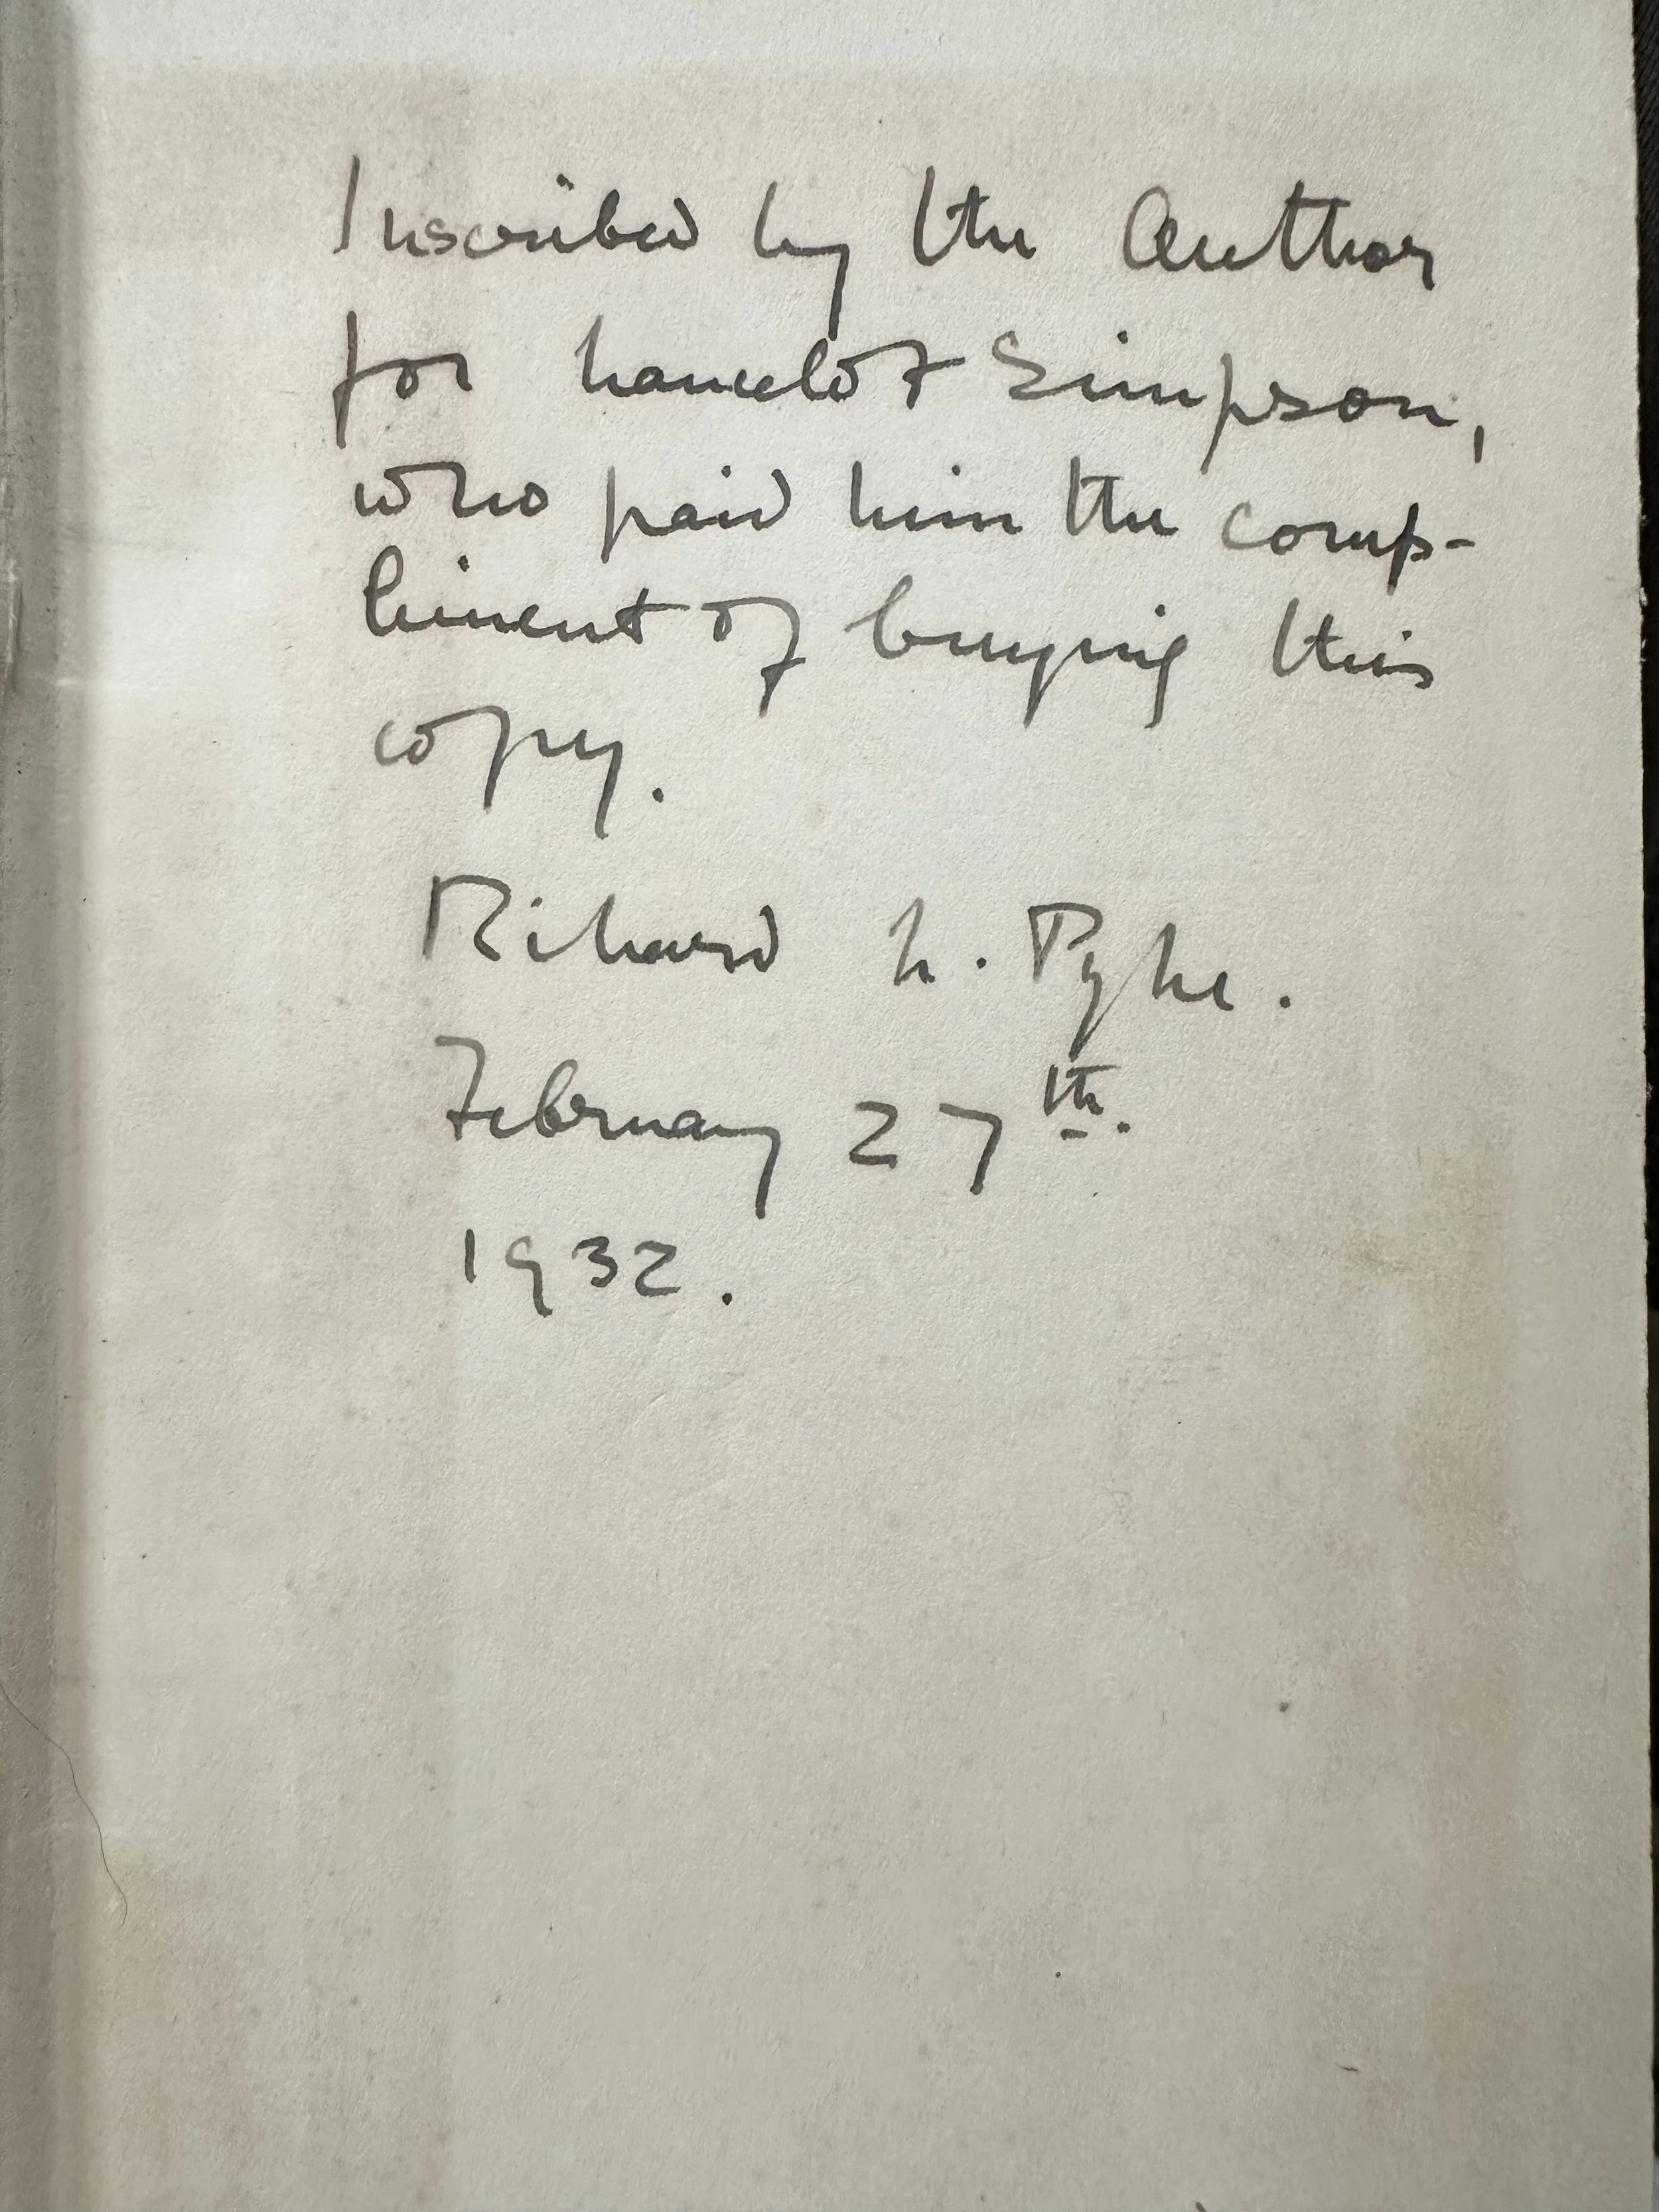 Inscribed by the Author
for Lancelot Simpson,
who paid him the comp-
liment of buying this
copy.
Richard L. Pyke.
February 27th.
1932.